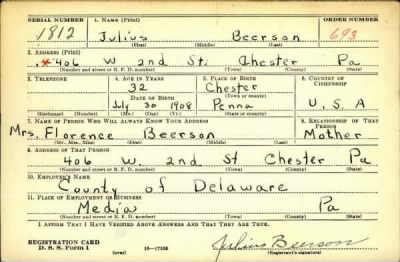 SERIAL NUMBER 1. NAME (Print) ORDER NUMBER
1812 Julius Beerson 693
(First) (Middle) (Last)
2. ADDRESS (Print)
*406 W 2nd St. Chester Pa
(Number and street or R. F. D. number) (Town) (County) (State)
3. TELEPHONE 4. AGE IN YEARS 5. PLACE OF BIRTH 6. COUNTRY OF CITIZENSHIP
32 Chester
DATE OF BIRTH (Town or county)
July 30 1908 Penna U.S.A
(Exchange) (Number) (Mo.) (Day) (Yr.) (State or country)
7. NAME OF PERSON WHO WILL ALWAYS KNOW YOUR ADDRESS 8. RELATIONSHIP OF THAT PERSON
Mrs. Florence Beerson Mother
(Mr., Mrs., Miss) (First) (Middle) (Last)
9. ADDRESS OF THAT PERSON
406 W. 2nd St Chester Pa
(Number and street or R. F. D. number) (Town) (County) (State)
10. EMPLOYER'S NAME
County of Delaware
11. PLACE OF EMPLOYMENT OR BUSINESS
Media Pa
(Number and street or R. F. D. number) (Town) (County) (State)
I AFFIRM THAT I HAVE VERIFIED ABOVE ANSWERS AND THAT THEY ARE TRUE.
REGISTRATION CARD
D. S. S. Form 1 (over) Julius Beerson
(Registrant's signature)